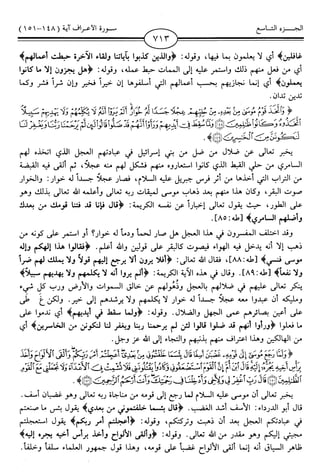 الجـــزء التـــاسع
سـورة الأعـراف آية (١٤٨-١٥١)
٧١٣
غافلين﴾ أي لا يعلمون بما فيها، وقوله: ﴿والذين كذبوا بآياتنا ولقاء الآخرة حبطت أعمالهم﴾
أي من فعل منهم ذلك واستمر عليه إلى الممات حبط عمله، وقوله: ﴿هل يجزون إلا ما كانوا
يعملون﴾ أي إنما نجازيهم بحسب أعمالهم التي أسلفوها إن خيراً فخير وإن شراً فشر وكما
تدين تدان.
﴿وَاتَّخَذَ قَوْمُ مُوسَىٰ مِنْ بَعْدِهِ مِنْ حُلِيِّهِمْ عِجْلًا جَسَدًا لَهُ خُوَارٌ أَلَمْ يَرَوْا أَنَّهُ لَا يُكَلِّمُهُمْ وَلَا يَهْدِيهِمْ سَبِيلًا
اتَّخَذُوهُ وَكَانُوا ظَالِمِينَ وَلَمَّا سُقِطَ فِي أَيْدِيهِمْ وَرَأَوْا أَنَّهُمْ قَدْ ضَلُّوا قَالُوا لَئِنْ لَمْ يَرْحَمْنَا رَبُّنَا وَيَغْفِرْ لَنَا
لَنَكُونَنَّ مِنَ الْخَاسِرِينَ﴾
يخبر تعالى عن ضلال من ضل من بني إسرائيل في عبادتهم العجل الذي اتخذه لهم
السامري من حلي القبط الذي كانوا استعاروه منهم فشكل لهم منه عجلاً، ثم ألقى فيه القبضة
من التراب التي أخذها من أثر فرس جبريل عليه السلام، فصار عجلاً جسداً له خوار: والخوار
صوت البقر، وكان هذا منهم بعد ذهاب موسى لميقات ربه تعالى وأعلمه الله تعالى بذلك وهو
على الطور، حيث يقول تعالى إخباراً عن نفسه الكريمة: ﴿قال فإنا قد فتنا قومك من بعدك
وأضلهم السامري﴾ [طه:٨٥].
وقد اختلف المفسرون في هذا العجل هل صار لحماً ودماً له خوار؟ أو استمر على كونه من
ذهب إلا أنه يدخل فيه الهواء فيصوت كالبقر على قولين والله أعلم. ﴿فقالوا هذا إلهكم وإله
موسى فنسي﴾ [طه:٨٨]، فقال الله تعالى: ﴿أفلا يرون ألا يرجع إليهم قولاً ولا يملك لهم ضراً
ولا نفعاً﴾ [طه:٨٩]. وقال في هذه الآية الكريمة: ﴿ألم يروا أنه لا يكلمهم ولا يهديهم سبيلاً﴾
ينكر تعالى عليهم في ضلالهم بالعجل وذُهُولهم عن خالق السموات والأرض ورب كل شيء
ومليكه أن عبدوا معه عجلاً جسداً له خوار لا يكلمهم ولا يرشدهم إلى خير. ولكن غَطَّى
على أعين بصائرهم عمى الجهل والضلال. وقوله: ﴿ولما سقط في أيديهم﴾ أي ندموا على
ما فعلوا ﴿ورأوا أنهم قد ضلوا قالوا لئن لم يرحمنا ربنا ويغفر لنا لنكونن من الخاسرين﴾ أي
من الهالكين وهذا اعتراف منهم بذنبهم والتجاء إلى الله عز وجل.
﴿وَلَمَّا رَجَعَ مُوسَىٰ إِلَىٰ قَوْمِهِ غَضْبَانَ أَسِفًا قَالَ بِئْسَمَا خَلَفْتُمُونِي مِنْ بَعْدِي أَعَجِلْتُمْ أَمْرَ رَبِّكُمْ وَأَلْقَى الْأَلْوَاحَ وَأَخَذَ
بِرَأْسِ أَخِيهِ يَجُرُّهُ إِلَيْهِ قَالَ ابْنَ أُمَّ إِنَّ الْقَوْمَ اسْتَضْعَفُونِي وَكَادُوا يَقْتُلُونَنِي فَلَا تُشْمِتْ بِيَ الْأَعْدَاءَ وَلَا تَجْعَلْنِي مَعَ الْقَوْمِ
الظَّالِمِينَ قَالَ رَبِّ اغْفِرْ لِي وَلِأَخِي وَأَدْخِلْنَا فِي رَحْمَتِكَ وَأَنْتَ أَرْحَمُ الرَّاحِمِينَ﴾
يخبر تعالى أن موسى عليه السلام لما رجع إلى قومه من مناجاة ربه تعالى وهو غضبان أسف.
قال أبو الدرداء: الأسف أشد الغضب. ﴿قال بئسما خلفتموني من بعدي﴾ يقول بئس ما صنعتم
في عبادتكم العجل بعد أن ذهبت وتركتكم، وقوله: ﴿أعجلتم أمر ربكم﴾ يقول استعجلتم
مجيئي إليكم وهو مقدر من الله تعالى. وقوله: ﴿وألقى الألواح وأخذ برأس أخيه يجره إليه﴾
ظاهر السياق أنه إنما ألقى الألواح غضباً على قومه، وهذا قول جمهور العلماء سلفاً وخلفاً.